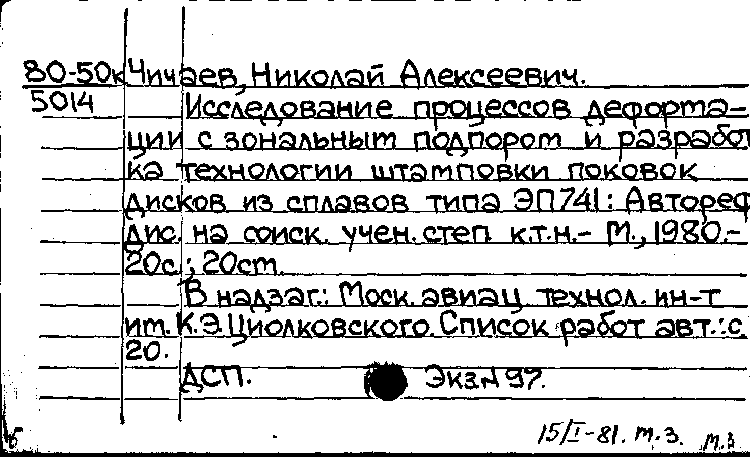 80-50к Чичаев, Николай Алексеевич.
5014 Исследование процессов деформа-
ции с зональным подпором и разработ
ка технологии штамповки поковок
дисков из сплавов типа ЭП741: Автореф
дис. на соиск. учен. степ. к.т.н.- М., 1980.-
20с.; 20см.
В надзаг.: Моск. авиац. технол. ин-т
им. К.Э. Циолковского. Список работ авт.: с.
20.
ДСП. Экз.№97.
15/I-81. м.з. м.з